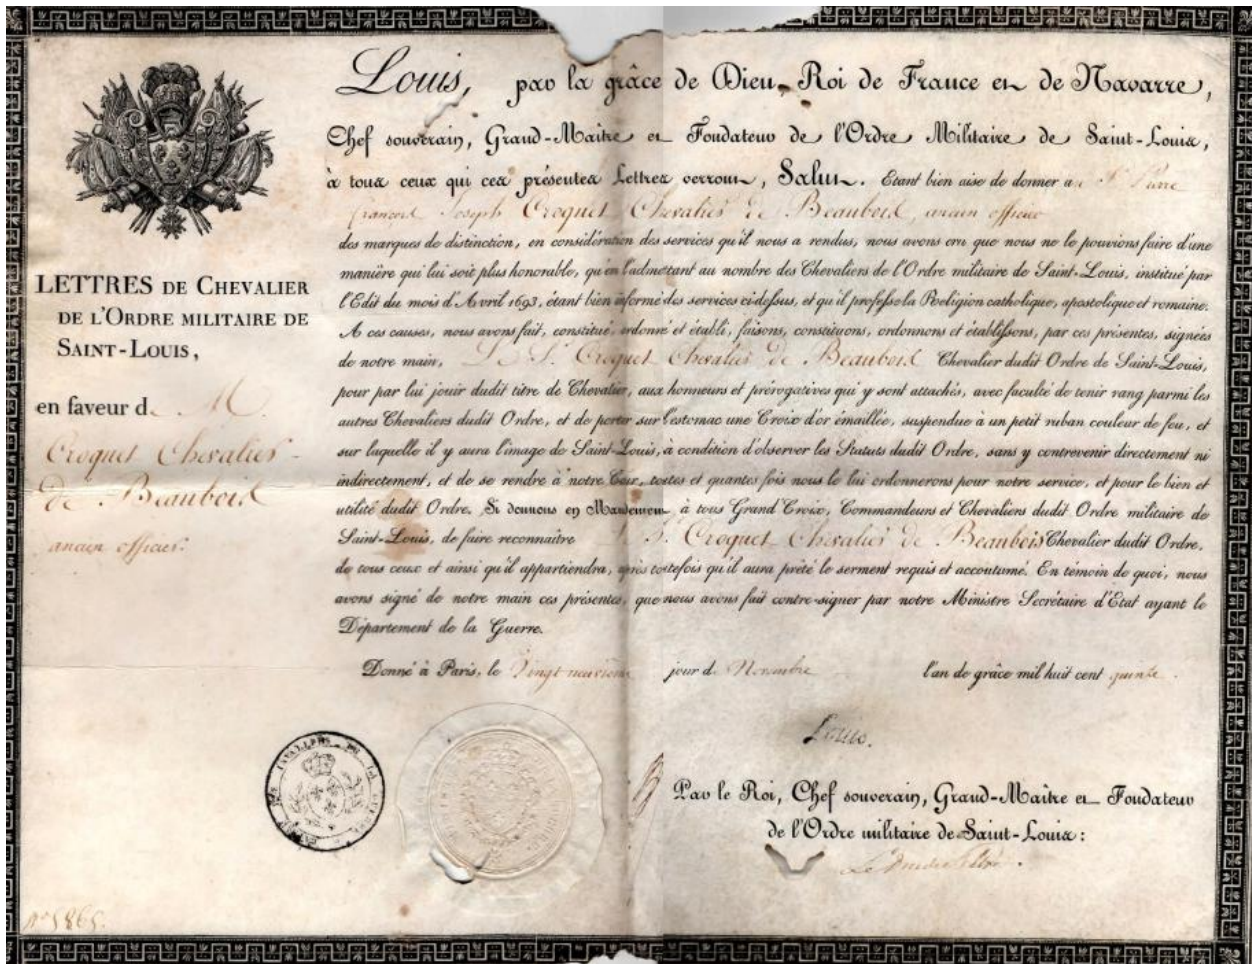 Louis, par la grâce de Dieu, Roi de France et de Navarre,
Chef souverain, Grand-Maître et Fondateur de l'Ordre Militaire de Saint-Louis,
à tous ceux qui ces présentes Lettres verront, Salut. Etant bien aise de donner au Sr. Pierre
François Joseph Croquet Chevalier de Beaubois, ancien officier
des marques de distinction, en considération des services qu'il nous a rendus, nous avons cru que nous ne le pouvions faire d'une
manière qui lui soit plus honorable, qu'en l'admettant au nombre des Chevaliers de l'Ordre militaire de Saint-Louis, institué par
l'Edit du mois d'Avril 1693, étant bien informé des services cidessus, et qu'il professe la Religion catholique, apostolique et romaine.
A ces causes, nous avons fait, constitué, ordonné et établi, faisons, constituons, ordonnons et établissons, par ces présentes, signées
de notre main, Le Sr. Croquet Chevalier de Beaubois Chevalier dudit Ordre de Saint-Louis,
pour par lui jouir dudit titre de Chevalier, aux honneurs et prérogatives qui y sont attachés, avec faculté de tenir rang parmi les
autres Chevaliers dudit Ordre, et de porter sur l'estomac une Croix d'or émaillée, suspendue à un petit ruban couleur de feu, et
sur laquelle il y aura l'image de Saint-Louis, à condition d'observer les Statuts dudit Ordre, sans y contrevenir directement ni
indirectement, et de se rendre à notre Cour, toutes et quantes fois nous le lui ordonnerons pour notre service, et pour le bien et
utilité dudit Ordre. Si donnons en Mandement à tous Grand'Croix, Commandeurs et Chevaliers dudit Ordre militaire de
Saint-Louis, de faire reconnaître le Sr. Croquet Chevalier de Beaubois Chevalier dudit Ordre,
de tous ceux et ainsi qu'il appartiendra, après toutefois qu'il aura prêté le serment requis et accoutumé. En témoin de quoi, nous
avons signé de notre main ces présentes, que nous avons fait contre-signer par notre Ministre Secrétaire d'Etat ayant le
Département de la Guerre.
Donné à Paris, le Vingt neuvième jour de Novembre l'an de grâce mil huit cent quinze.
Louis.
Par le Roi, Chef souverain, Grand-Maître et Fondateur
de l'Ordre militaire de Saint-Louis:
LETTRES DE CHEVALIER
DE L'ORDRE MILITAIRE DE
SAINT-LOUIS,
en faveur de M.
Croquet Chevalier
de Beaubois
ancien officier.
No 5865.